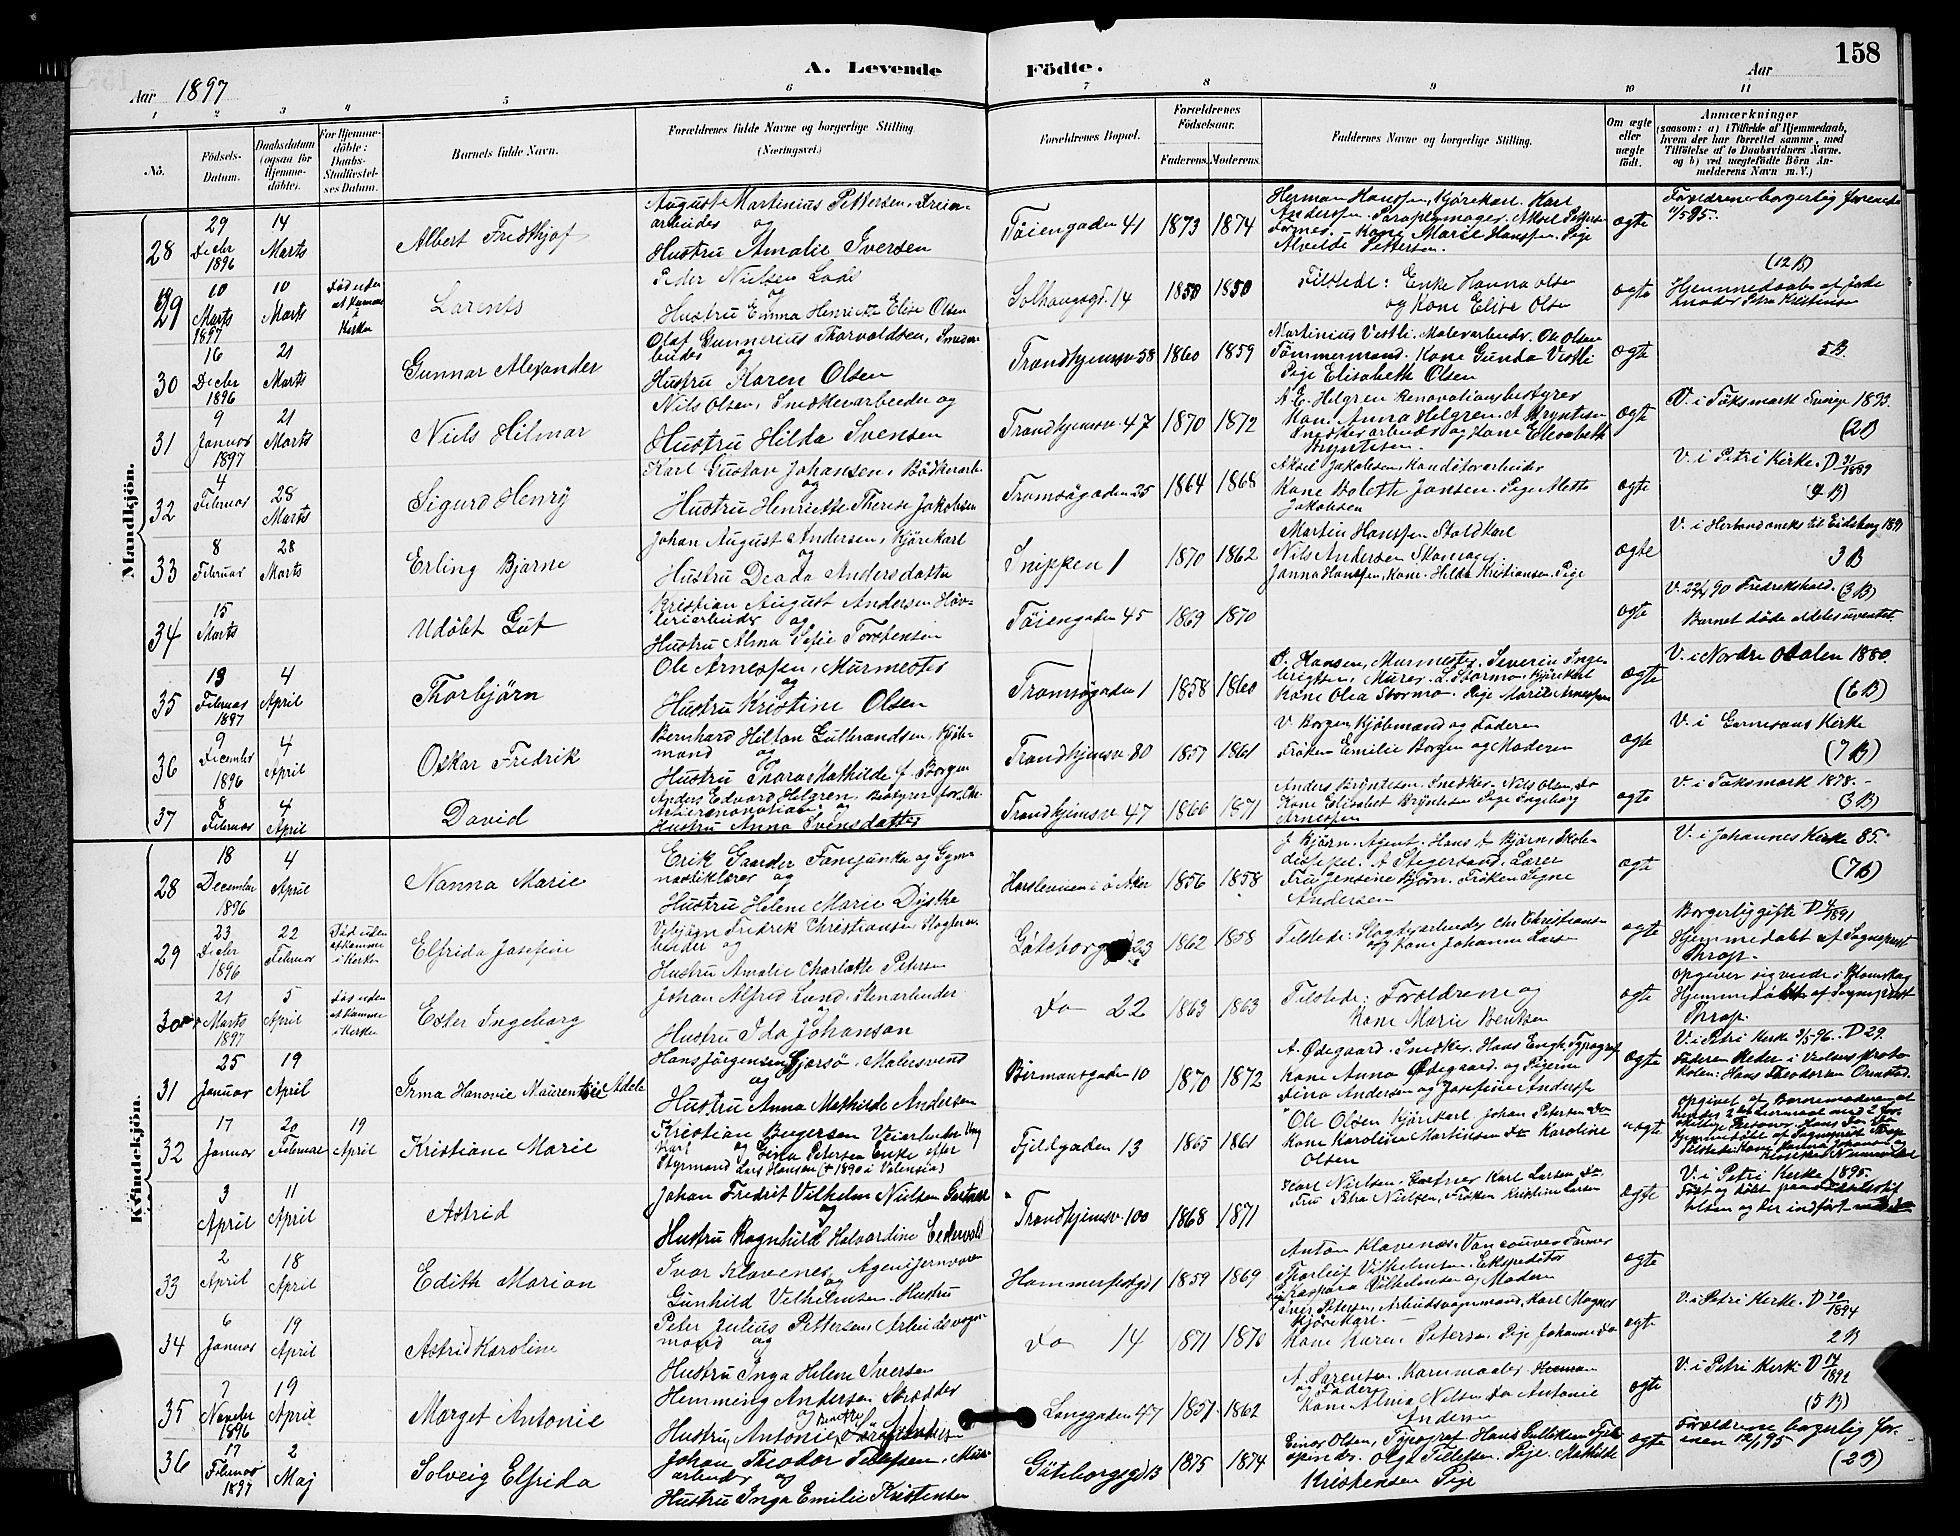 158
A. Levende Födte.
Aar 1897
Aar
1 2 3 4 5 6 7 8 9 10 11
No.
Födsels-Datum.
Daabsdatum (ogsaa for Hjemmedöbte).
For Hjemmedöbte: Daabs-Stadfæstelses Datum.
Barnets fulde Navn.
Forældrenes fulde Navne og borgerlige Stilling (Næringsvei.)
Forældrenes Bopæl.
Forældrenes Födselsaar.
Faderens. Moderens.
Faddernes Navne og borgerlige Stilling.
Om ægte eller uægte födt.
Anmærkninger (saasom: a) i Tilfælde af Hjemmedaab, hvem der har forrettet samme, med Tilföielse af to Daabsvidners Navne, og b) ved uægtefödte Börn Anmelderens Navn m. V.)
Mandkjön.
28 29 Decbr 1896 14 Marts Albert Fredthjof
August Martinius Pettersen,
arbeider og
Hustru Amalie Iversen
Töiengaden 41 1873 1874
Herman Hanssen, Kjörekarl. Karl
Kone Marie Hanssen. Pige
Alvelde Pettersen.
ægte
Forældrene borgerlig forenede
(12 B)
29 10 Marts 1897 10 Marts Död uden at komme i Kirken Larents
Peder Nielsen
og
Hustru Emma Henriette Elise Olsen
Solhaugsgd. 14 1850 1850
Tilstede: Enke Hanna Olsen
og Kone Elise Olsen
ægte
Hjemmedaab af Jorde
moder Petra Kristensen
30 16 Decbr 1896 21 Marts Gunnar Alexander
Olaf Gunnerius Thorvaldsen,
beider og
Hustru Karen Olsen
Trondhjemsv 58 1860 1859
Martinius Vestli. Malerarbeider. Ole Olsen
Tömmermand. Kone Gunda Vestli
Pige Elisabeth Olsen
ægte
5 B.
31 9 Januar 1897 21 Marts Niels Hilmar
Nils Olsen, Snedkerarbeider og
Hustru Hilda Svensen
Trondhjemsv 47 1870 1872
A. E. Helgren Renovationsbestyrer
Kone Anna Helgren. A. Bryntesen
Snedkerarbeider og Kone Elisabeth
Bryntesen.
ægte
V. i Töksmark Sverige 1890.
(2 B)
32 4 Februar 28 Marts Sigurd Henry
Karl Gustav Johansen, Bödkerarb.
og
Hustru Henriette Therese Jakobsen
Tromsögaden 25 1864 1868
Aksel Jakobsen, Konditorarbeider
Kone Bolette Jansen. Pige Mette
Jakobsen
ægte
V. i Petri Kirke. D 31/1889
(4 B)
33 8 Februar 28 Marts Erling Bjarne
Johan August Andersen, Kjörekarl
og
Hustru Deada Andersdatter
Snippen 1 1870 1862
Martin Hanssen Staldkarl
Nils Andersen Skomager.
Janna Hanssen, Kone. Hilda Kristiansen. Pige
ægte
V. i Herland anneks til Eidsberg 1891
3 B
34 15 Marts Udöbt Gut
Kristian August Andersen Höv-
leriarbeider og
Hustru Alma Sofie Torstensen
Töiengaden 45 1869 1870
ægte
V. 22/ 90 Fredrikshald. (3 B)
Barnet döde aldeles uventet.
35 13 Februar 1897 4 April Thorbjörn
Ole Arnessen, Murmester
og
Hustru Kristine Olsen
Tromsögaden 1 1858 1860
O. Hansen, Murmester. Severin Inge-
brigtsen, Murer. L. Stormo. Kjörekarl
Kone Olea Stormo. Pige Marie Arnessen
ægte
V. i Nordre Odalen 1880.
(6 B)
36 9 December 1896 4 April Oskar Fredrik
Bernhard Hilton Gulbrandsen, Kjöb-
mand og
Hustru Thora Mathilde f. Borgen
Trondhjemsv. 80 1857 1861
V. Borgen Kjöbmand og Faderen
Fröken Emilie Borgen og Moderen
ægte
V. i Garnisons Kirke
(7 B)
37 8 Februar 4 April David
Anders Edvard Helgren, Bestyrer for
og
Hustru Anna Svensdatter
Trondhjemsv 47 1866 1871
Anders Bryntesen. Snedker. Nils Olsen, Do
Kone Elisabet Bryntesen Pige Ingeborg
Arnessen
ægte
V. i Töksmark 1878.
3 B)
Kvindekjön.
28 18 December 1896 4 April Nanna Marie
Erik Gaarder Fanejunker og Gym-
nastiklærer og
Hustru Helene Marie Dysthe
i ö. Aker 1856 1858
J. Bjørn. Agent. Hans A Bjørn, Skole-
discipel. A Stigersand. Lærer
Fru Jensine Bjørn. Fröken Signe
Andersen
ægte
V. i Johannes Kirke 85.
(7 B)
29 23 Decbr 1896 22 Februar Död uden at komme i Kirken Elfrida Josefine
Fredrik Christiansen Slagterar-
beider og
Hustru Amalie Charlotte Petersen
Göteborggd 23 1862 1858
Tilstede: Slagterarbeider Chr Christiansen
og Kone Johanne Larsen
ægte
Borgerlig gifte D 4/1891
Hjemmedöbt af Sogneprest
Throp.
30 21 Marts 1897 5 April Död uden at komme i Kirken Ester Ingeborg
Johan Alfred Lund. Stenarbeider
og
Hustru Ida Johanson
Do 22 1863 1863
Tilstede: Forældrene og
Kone Marie Bentsen
ægte
opgiver sig viede i Blomskog
Hjemmedöbt af Sogneprest
Throp.
31 25 Januar 19 April Irma Hanovie Maurentzie Adele
Hans Jörgensen Gjersö, Malersvend
og
Hustru Anna Mathilde Andersen
Birmansgaden 10 1870 1872
A. Ødegaard. Snedker. Hans Engh, Typograf
Kone Anna Ødegaard. og Pigerne
Dina Andersen og Josefine Andersen
ægte
V. i Petri Kirke 3/5 96. D 29.
Faderen heder i Vielsesproto-
kolen: Hans Theodorsen Ormstad.
32 17 Januar 20 Februar 19 April Kristiane Marie
Kristian Birgersen Veiarbeider Ung
karl og Gina Petersen Enke efter
Styrmand Lars Hansen († 1890 i Valensia)
Fjeldgaden 13 1865 1861
Ole Olsen Kjörekarl. Johan Petersen Do
Kone Karoline Martinsen Do Karoline
Olsen
uægte
Opgivet af Barnemoderen at
hendes 2det Leiermaal med 2 for-
skjellige Personer.
Hjemmedöbt af Sogneprest Throp
3 April 11 April Astrid
Johan Fredrik Vilhelm Nielsen Gartner
og
Hustru Ragnhild Halvardine Cedervold
Trondhjemsv. 100 1868 1871
Karl Nielsen, Gartner Karl Larsen Do
Fru Petra Nielsen, Fröken Kristine Larsen
ægte
V. i Petri Kirke 1895.
33 2 April 18 April Edith Marion
Ivar Klavenes, Agent
og
Gunhild Vilhelmsen. Hustru
Hammerfestgd 1 1859 1869
Anton Klavenæs. Vancouver Farmer
Thorleif Vilhelmsen. Ekspeditör
Kaspara Vilhelmsen og Moderen
ægte
34 6 Januar 19 April Astrid Karoline
Peter Julius Pettersen Arbeidsvogn-
mand og
Hustru Inga Helene Iversen
Do 14 1871 1870
Petersen, Arbeidsvognmand, Karl Magnus
Kjörekarl.
Kone Karen Petersen, Pige Johanne Do
ægte
V. i Petri Kirke. D 20/1894
2 B
35 7 Novebr 1896 19 April Marget Antonie
Hemming Andersen Skrædder
og
Hustru Antonie
Langgaden 47 1857 1862
A. Sörensen Kornmaaler
og Fader
Kone Alma Nilsen Do Antonie
Andersen
ægte
V. i Petri Kirke D 14/1892
(5 B)
36 17 Februar 1897 2 Maj Solveig Elfrida
Johan Theodor Tillefsen, Mur-
arbeider og
Hustru Inga Emilie Kristensen
Göteborgsgd 13 1875 1874
Einar Olsen, Typograf Hans Gulliksen
Olga Tillefsen. Pige. Mathilde
Kristensen Pige
ægte
Forældrene borgerlig for-
enen 12/1 95
(2 B)